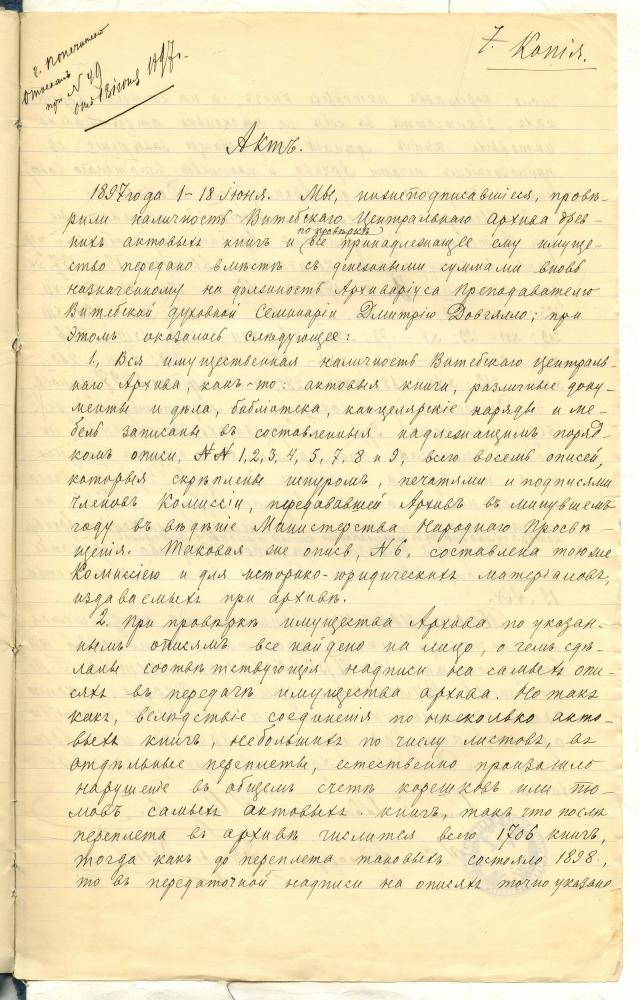 г. Попечителю
отослана
при № 49
отъ 18 iюня 1897 г.
7. Копiя.
Актъ.
1897 года 1–18 iюня. Мы, нижеподписавшiеся, провѣ-
рили наличность Витебскаго Центральнаго Архива древ-
нихъ актовыхъ книгъ и по провѣркѣ все принадлежащее ему имуще-
ство передано вмѣстѣ съ денежными суммами вновь
назначенному на должность Архиварiуса Преподавателю
Витебской духовной Семинарiи Дмитрiю Довгялло; при
этомъ оказалось слѣдующее:
1, Вся имущественная наличность Витебскаго Централь-
наго Архива, какъ-то: актовыя книги, различные доку-
менты и дѣла, библiотека, канцелярскiе наряды и ме-
бель записаны въ составленныя надлежащимъ поряд-
комъ описи, №№ 1, 2, 3, 4, 5, 7, 8 и 9, всего восемь описей,
которыя скрѣплены шнуромъ, печатями и подписями
членовъ Комиссiи, передававшей Архивъ въ минувшемъ
году въ вѣдѣнiе Министерства Народнаго Просвѣ-
щенiя. Таковая же опись, № 6, составлена тою же
Комиссiею и для историко-юридическихъ матерiаловъ,
издаваемыхъ при архивѣ.
2. При провѣркѣ имущества Архива по указан-
нымъ описямъ все найдено на лицо, о чемъ сдѣ-
ланы соотвѣтствующiя надписи на самыхъ опи-
сяхъ въ передачѣ имущества архива. Но такъ
какъ, вслѣдствiе соединенiя по нѣсколько акто-
выхъ книгъ, небольшихъ по числу листовъ, въ
отдѣльные переплеты, естественно произошло
нарушенiе въ общемъ счетѣ корешковъ или то-
мовъ самыхъ актовыхъ книгъ, такъ что послѣ
переплета въ архивѣ числится всего 1706 книгъ,
тогда какъ до переплета таковыхъ состояло 1898,
то въ передаточной надписи на описяхъ точно указано